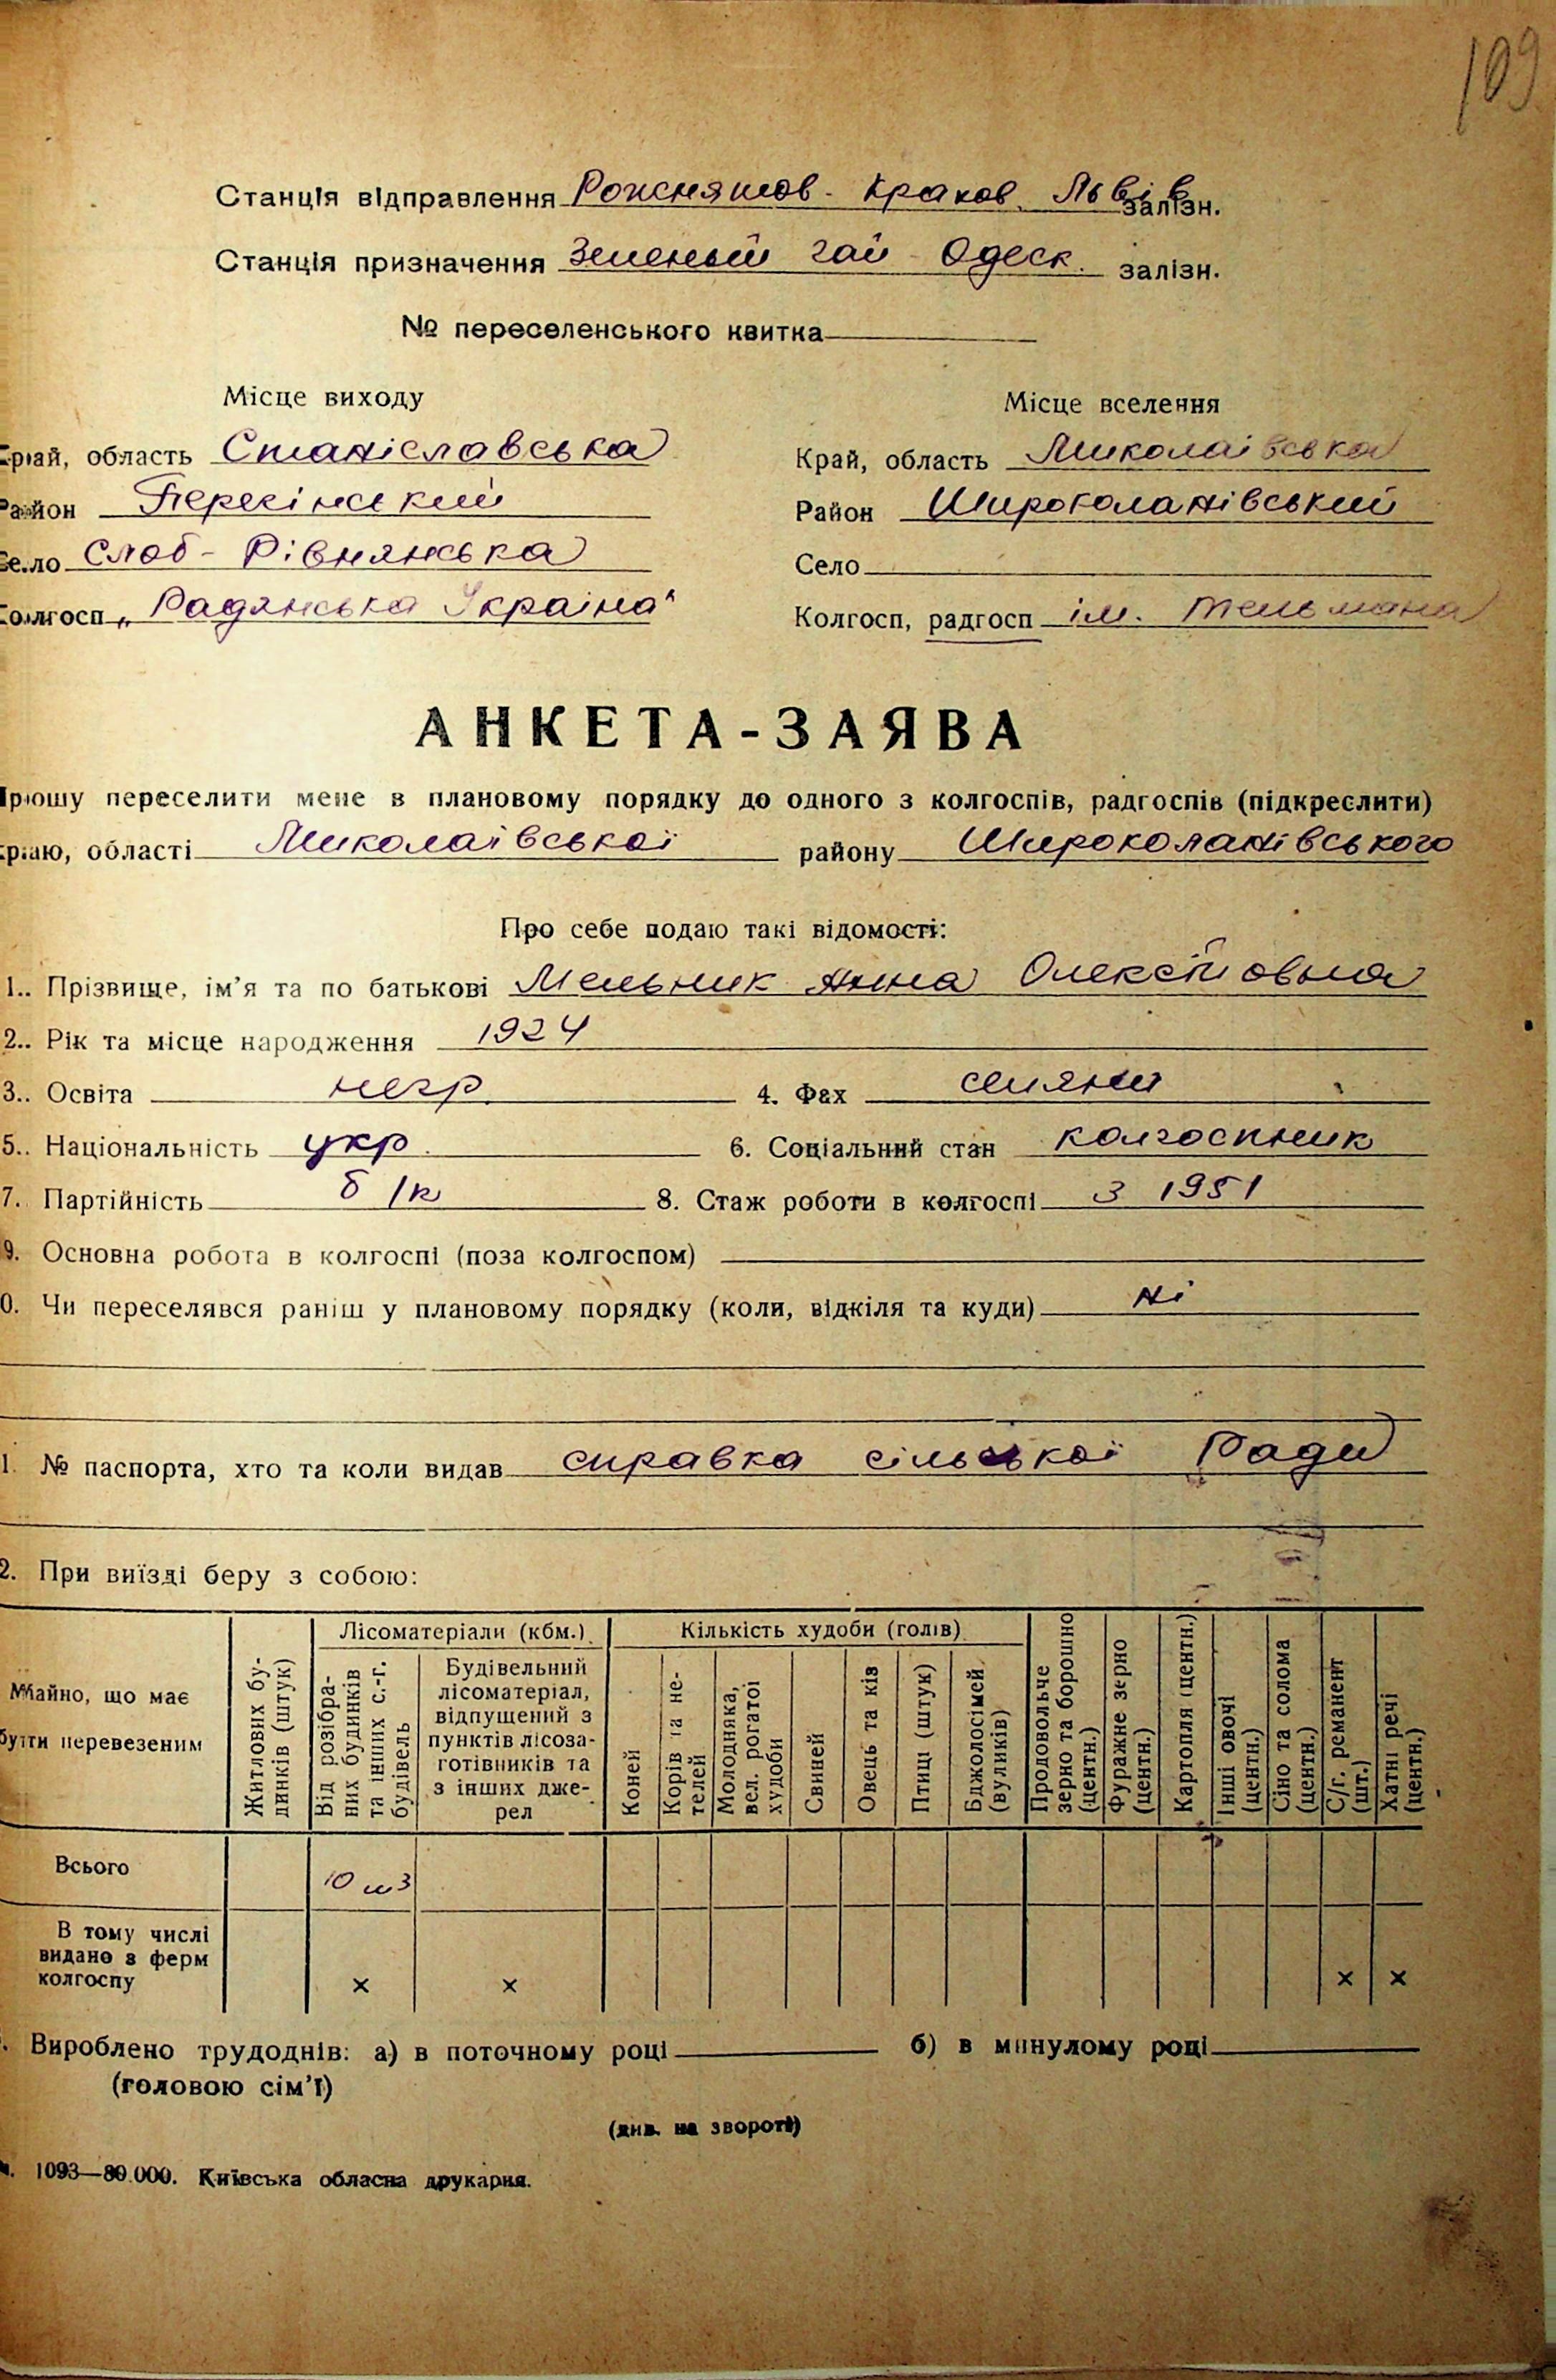 109
Станція відправлення Рожнятов - Краков. Львів залізн.
Станція призначення Зеленый гай Одеск. залізн.
№ переселенського квитка
Місце виходу
Місце вселення
Край, область Станіславська
Край, область Миколаівська
Район Перегінський
Район Широколанівський
Село Слоб - Рівнянська
Село
Колгосп „Радянська Україна"
Колгосп, радгосп ім. Тельмана
АНКЕТА-ЗАЯВА
Прошу переселити мене в плановому порядку до одного з колгоспів, радгоспів (підкреслити)
краю, області Миколаівської району Широколанівського
Про себе подаю такі відомості:
1. Прізвище, ім'я та по батькові Мельник Анна Олексійовна
2. Рік та місце народження 1924
3. Освіта негр. 4. Фах селянин
5. Національність укр. 6. Соціальний стан колгоспник
7. Партійність б/п 8. Стаж роботи в колгоспі з 1951
9. Основна робота в колгоспі (поза колгоспом)
0. Чи переселявся раніш у плановому порядку (коли, відкіля та куди) ні
1. № паспорта, хто та коли видав справка сільської Ради
2. При виїзді беру з собою:
Майно, що має бути перевезеним
Житлових будинків (штук)
Лісоматеріали (кбм.)
Від розібраних будинків та інших с.-г. будівель
Будівельний лісоматеріал, відпущений з пунктів лісозаготівників та з інших джерел
Кількість худоби (голів)
Коней
Корів та нетелей
Молодняка, вел. рогатої худоби
Свиней
Овець та кіз
Птиці (штук)
Бджолосімей (вуликів)
Продовольче зерно та борошно (центн.)
Фуражне зерно (центн.)
Картопля (центн.)
Інші овочі (центн.)
Сіно та солома (центн.)
С/г. реманент (шт.)
Хатні речі (центн.)
Всього 10 м3
В тому числі видано з ферм колгоспу × × × ×
Вироблено трудоднів: а) в поточному році б) в минулому році
(головою сім'ї)
(див. на звороті)
1093—80.000. Київська обласна друкарня.